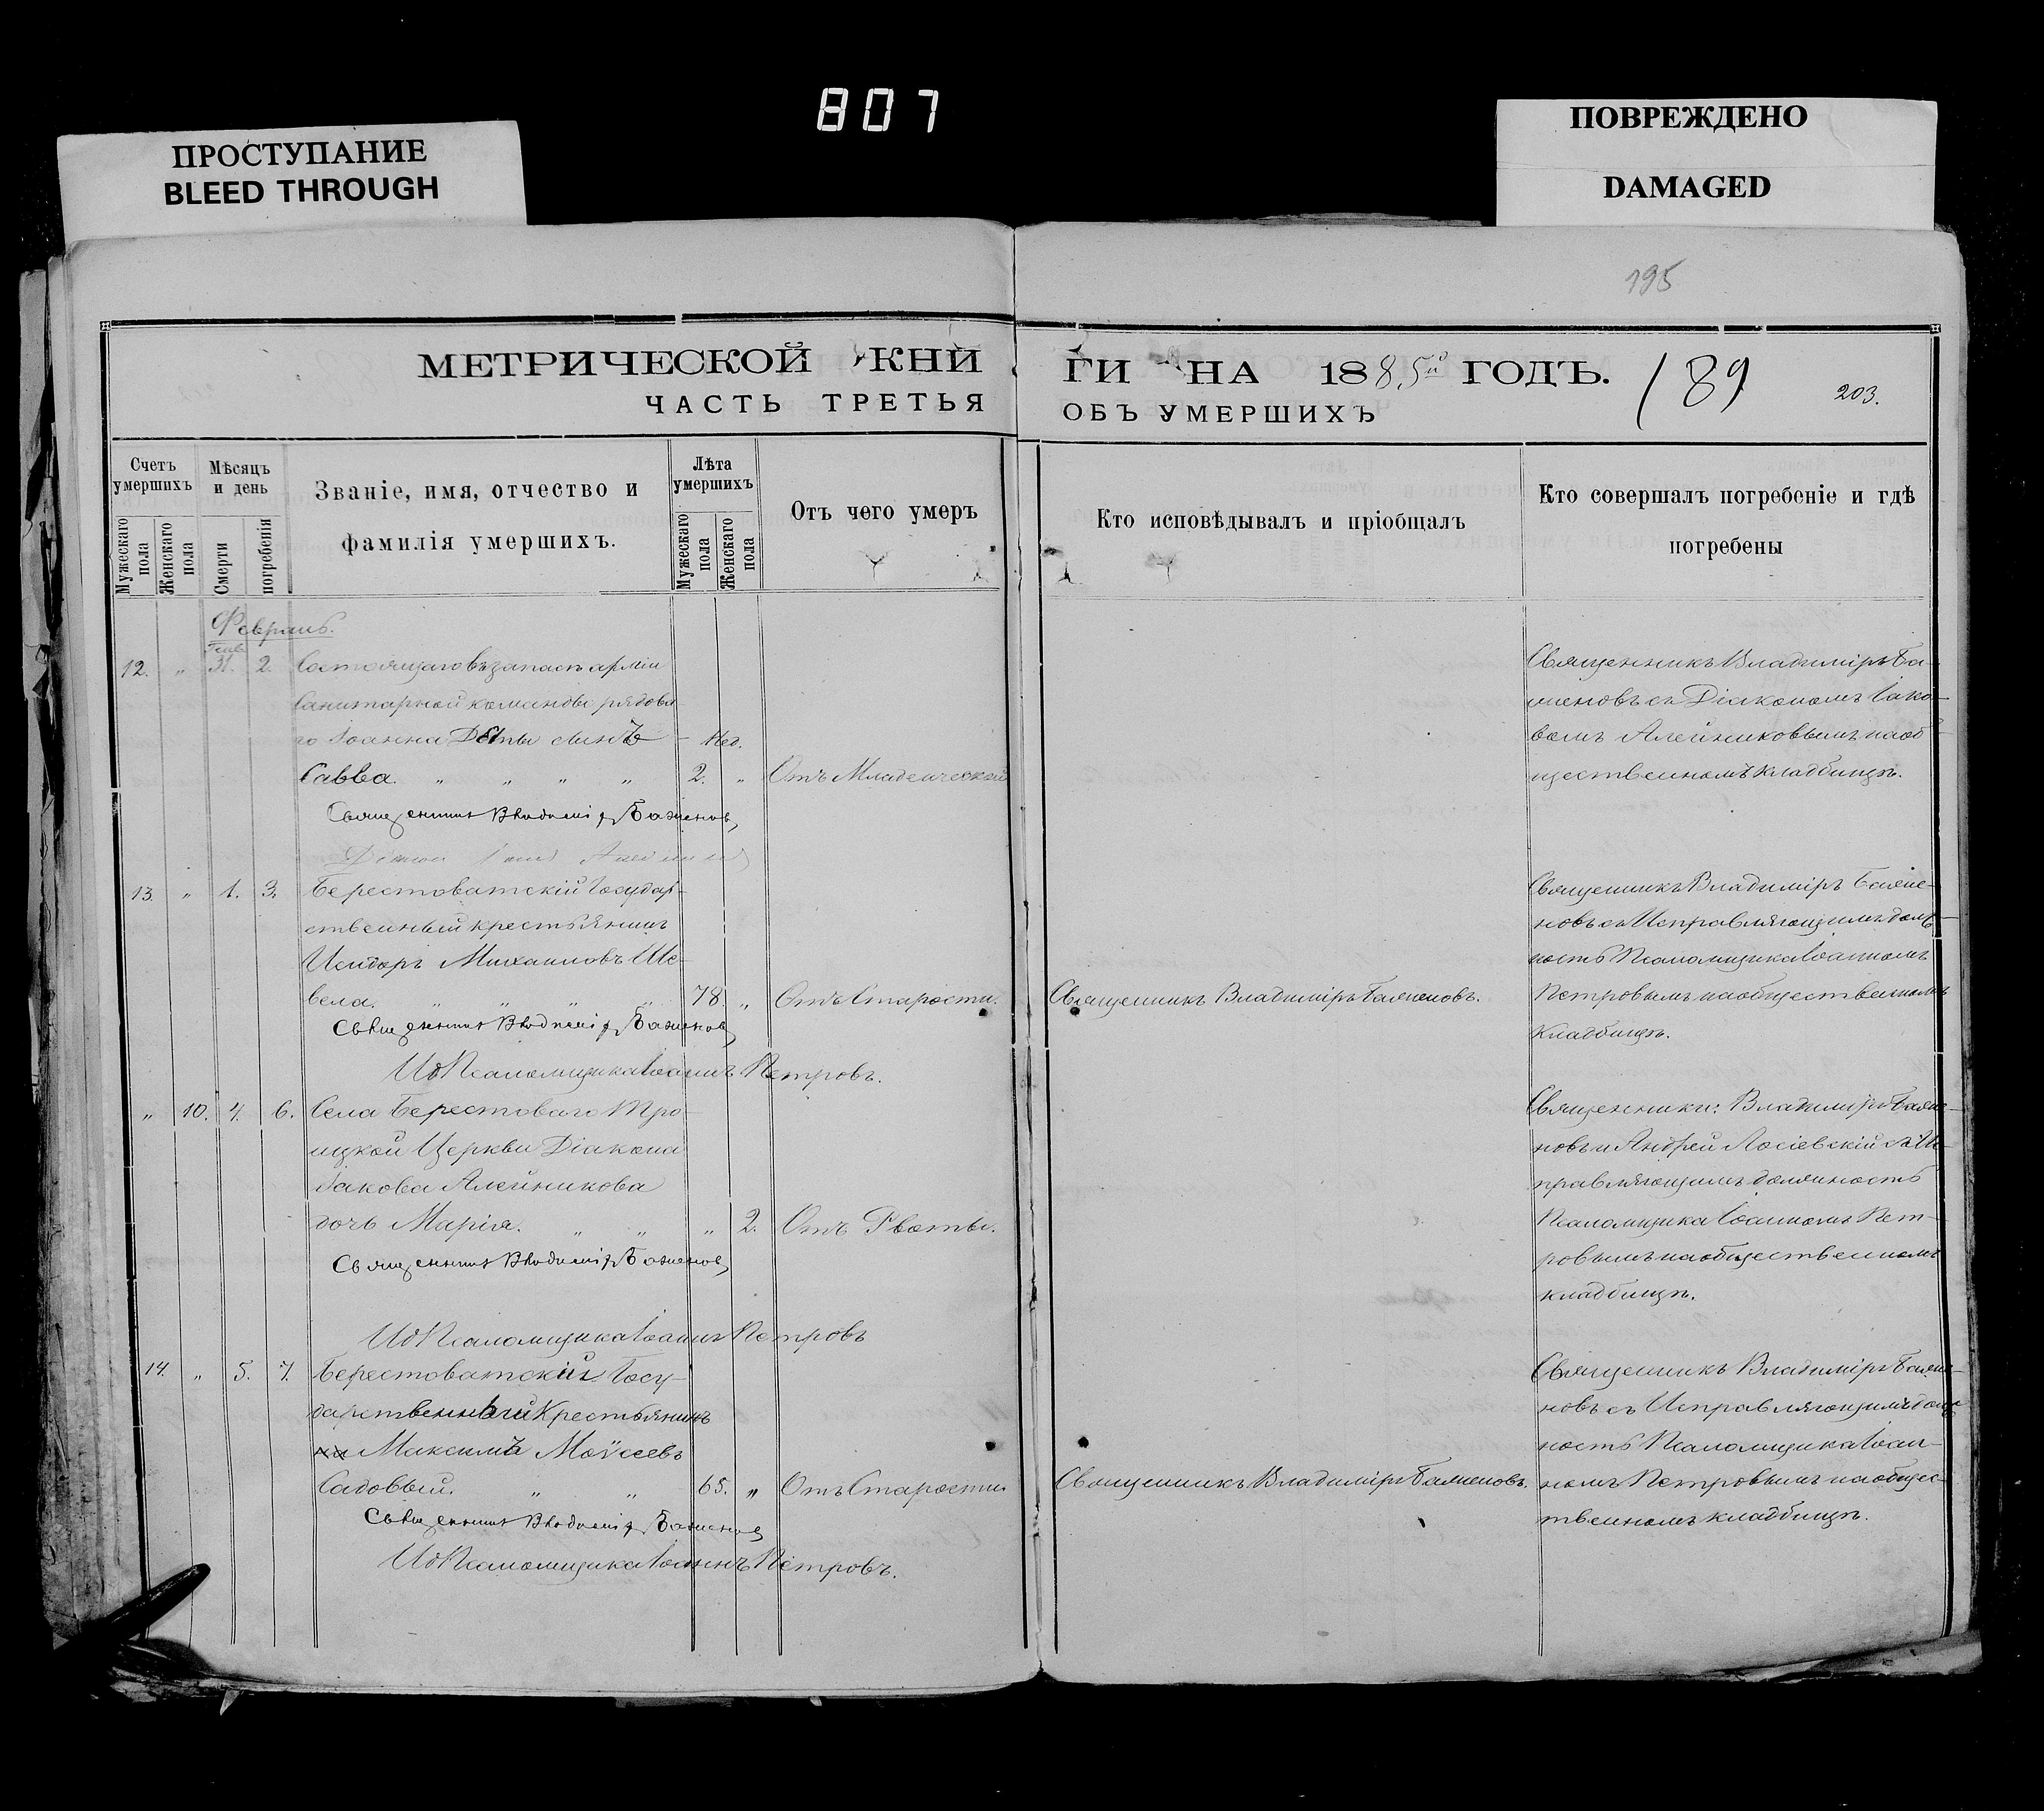 807
ПРОСТУПАНИЕ
BLEED THROUGH
ПОВРЕЖДЕНО
DAMAGED
195
МЕТРИЧЕСКОЙ КНИ
ГИ НА 1885й ГОДЪ.
189
203.
ЧАСТЬ ТРЕТЬЯ
ОБЪ УМЕРШИХЪ
Счетъ умершихъ
Мужескаго пола
Женскаго пола
Мѣсяцъ и день
Смерти
погребенія
Званіе, имя, отчество и
фамилія умершихъ.
Лѣта умершихъ
Мужескаго пола
Женскаго пола
Отъ чего умеръ
Кто исповѣдывалъ и пріобщалъ
Кто совершалъ погребеніе и гдѣ
погребены
Февраль.
Генв.
12. " 31. 2. Состоящаго въ запасѣ арміи
санитарной команды рядова-
го Іоанна сынъ — Нед.
Савва. " " " " 2. " Отъ Младенческой
Священникъ Владиміръ Баженовъ
Священникъ Владиміръ Ба-
женовъ съ Діакономъ Іако-
вомъ Алейниковымъ на об-
щественномъ кладбищѣ.
13. " 1. 3. Берестоватскій Государ-
ственный крестьянинъ
Исидоръ Михаиловъ Ше-
вела. " " " " 78 " Отъ Старости.
Священникъ Владиміръ Баженовъ
Ид Псаломщика Іоаннъ Петровъ.
Священникъ Владиміръ Баженовъ.
Священникъ Владиміръ Баже-
новъ съ Исправляющимъ долж-
ность Псаломщика Іоанномъ
Петровымъ на общественномъ
кладбищѣ.
" 10. 4. 6. Села Берестоваго Тро-
ицкой Церкви Діакона
Іакова Алейникова
дочь Марія. " " " 2. Отъ Рвоты.
Священникъ Владиміръ Баженовъ
Ид Псаломщика Іоаннъ Петровъ
Священники: Владиміръ Баже-
новъ и Андрей Лосіевскій съ Ис-
правляющимъ должность
Псаломщика Іоанномъ Пет-
ровымъ на общественномъ
кладбищѣ.
14. " 5. 7. Берестоватскій Госу-
дарственный Крестьянинъ
Максимъ Моѵсеевъ
Садовый. " " 65. " Отъ Старости
Священникъ Владиміръ Баженовъ
Ид Псаломщика Іоаннъ Петровъ.
Священникъ Владиміръ Баженовъ.
Священникъ Владиміръ Баже-
новъ съ Исправляющимъ долж-
ность Псаломщика Іоан-
номъ Петровымъ на общес-
твенномъ кладбищѣ.